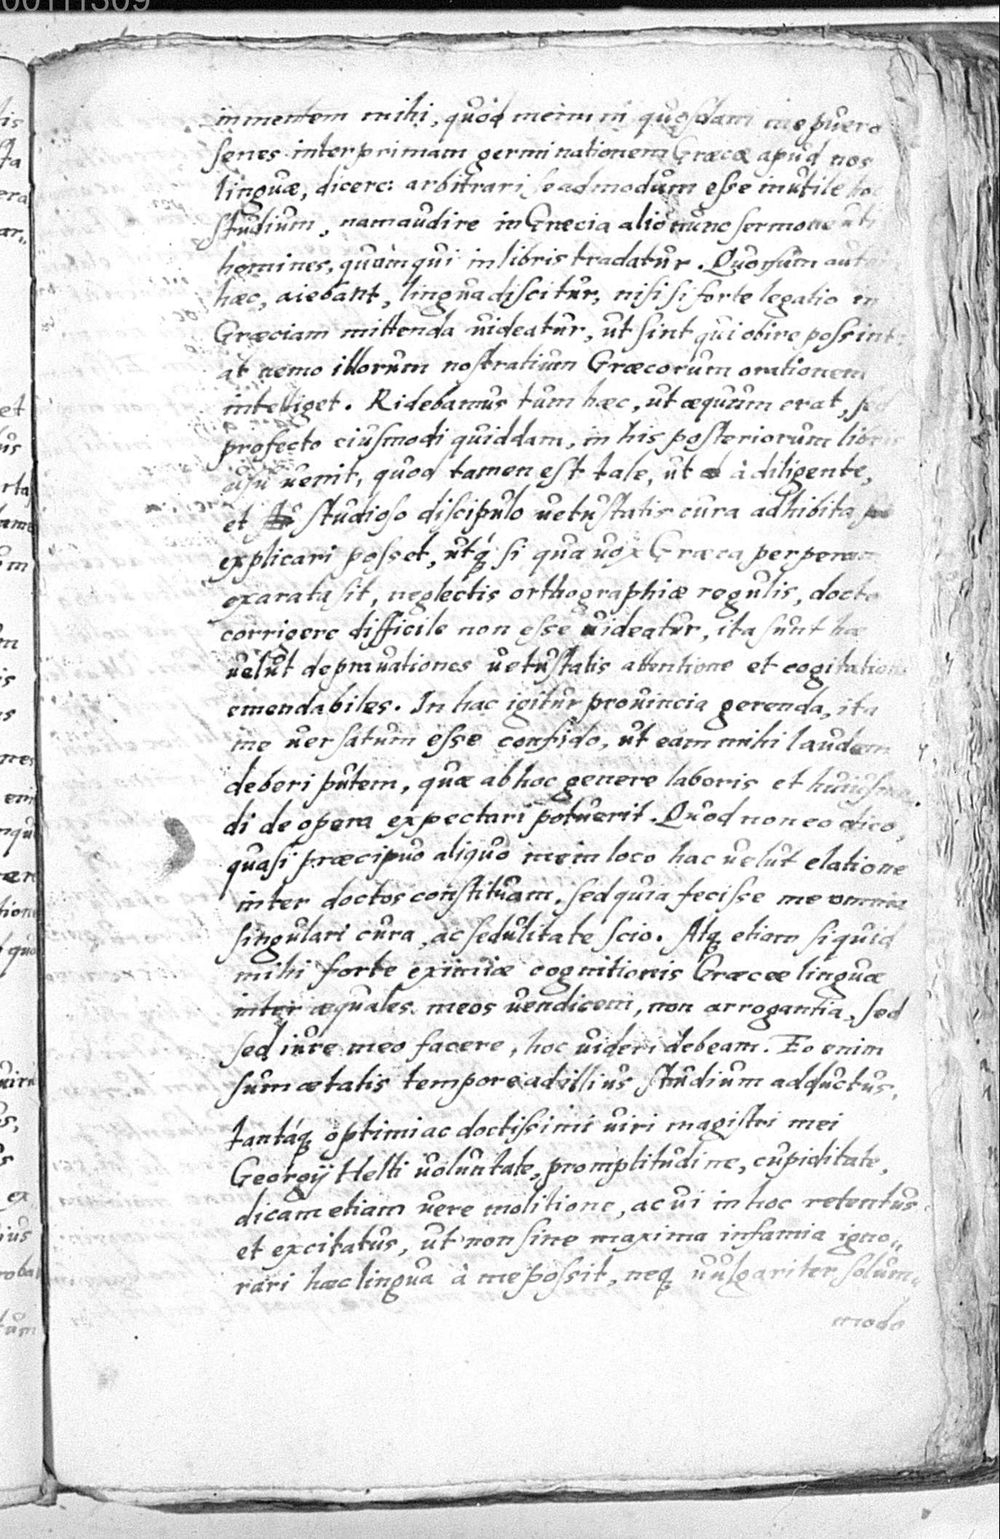 00111309
in mentem mihi, quod memini quosdam me puero
senes inter primam germinationem Græcæ apud nos
linguæ, dicere: arbitrari se admodum esse inutile ho
studium, nam audire in Græcia alio nunc sermone uti
homines, quàm qui in libris tradatur. Quorsum aut
hæc, aiebant, lingua discitur, nisi si forte legatio in
Græciam mittenda uideatur, ut sint qui obire possint:
at nemo illorum nostratium Græcorum orationem
intelliget. Ridebamus tum hæc, ut æquum erat, sed
profecto eiusmodi quiddam, in his posteriorum libris
usu uenit, quod tamen est tale, ut à diligente,
et studioso discipulo uetustatis cura adhibita
explicari posset, utq́ si qua uox Græca perperam
exarata sit, neglectis orthographiæ regulis, docto
corrigere difficile non esse uideatur, ita sunt hæ
uelut deprauationes uetustatis attentione et cogitation
emendabiles. In hac igitur prouincia gerenda, ita
me uersatum esse confido, ut eam mihi laudem
deberi putem, quæ ab hoc genere laboris et huiusmo
di de opera expectari potuerit. Quod non eo dico,
quasi præcipuo aliquo me in loco hac uelut elatione
inter doctos constituam, sed quia fecisse me omnia
singulari cura, ac sedulitate scio. Atq etiam si quid
mihi forte eximiæ cognitionis Græcæ linguæ
inter æquales meos uendicem, non arrogantia, sed
sed iure meo facere, hoc uideri debeam. Eo enim
sum ætatis tempore ad illius studium adductus,
tantáq optimi ac doctissimi uiri magistri mei
Georgij Helti uoluntate, promptitudine, cupiditate,
dicam etiam uere molitione, ac ui in hoc retentus
et excitatus, ut non sine maxima infamia igno„
rari hæc lingua à me possit, neq uulgariter solum„
modo